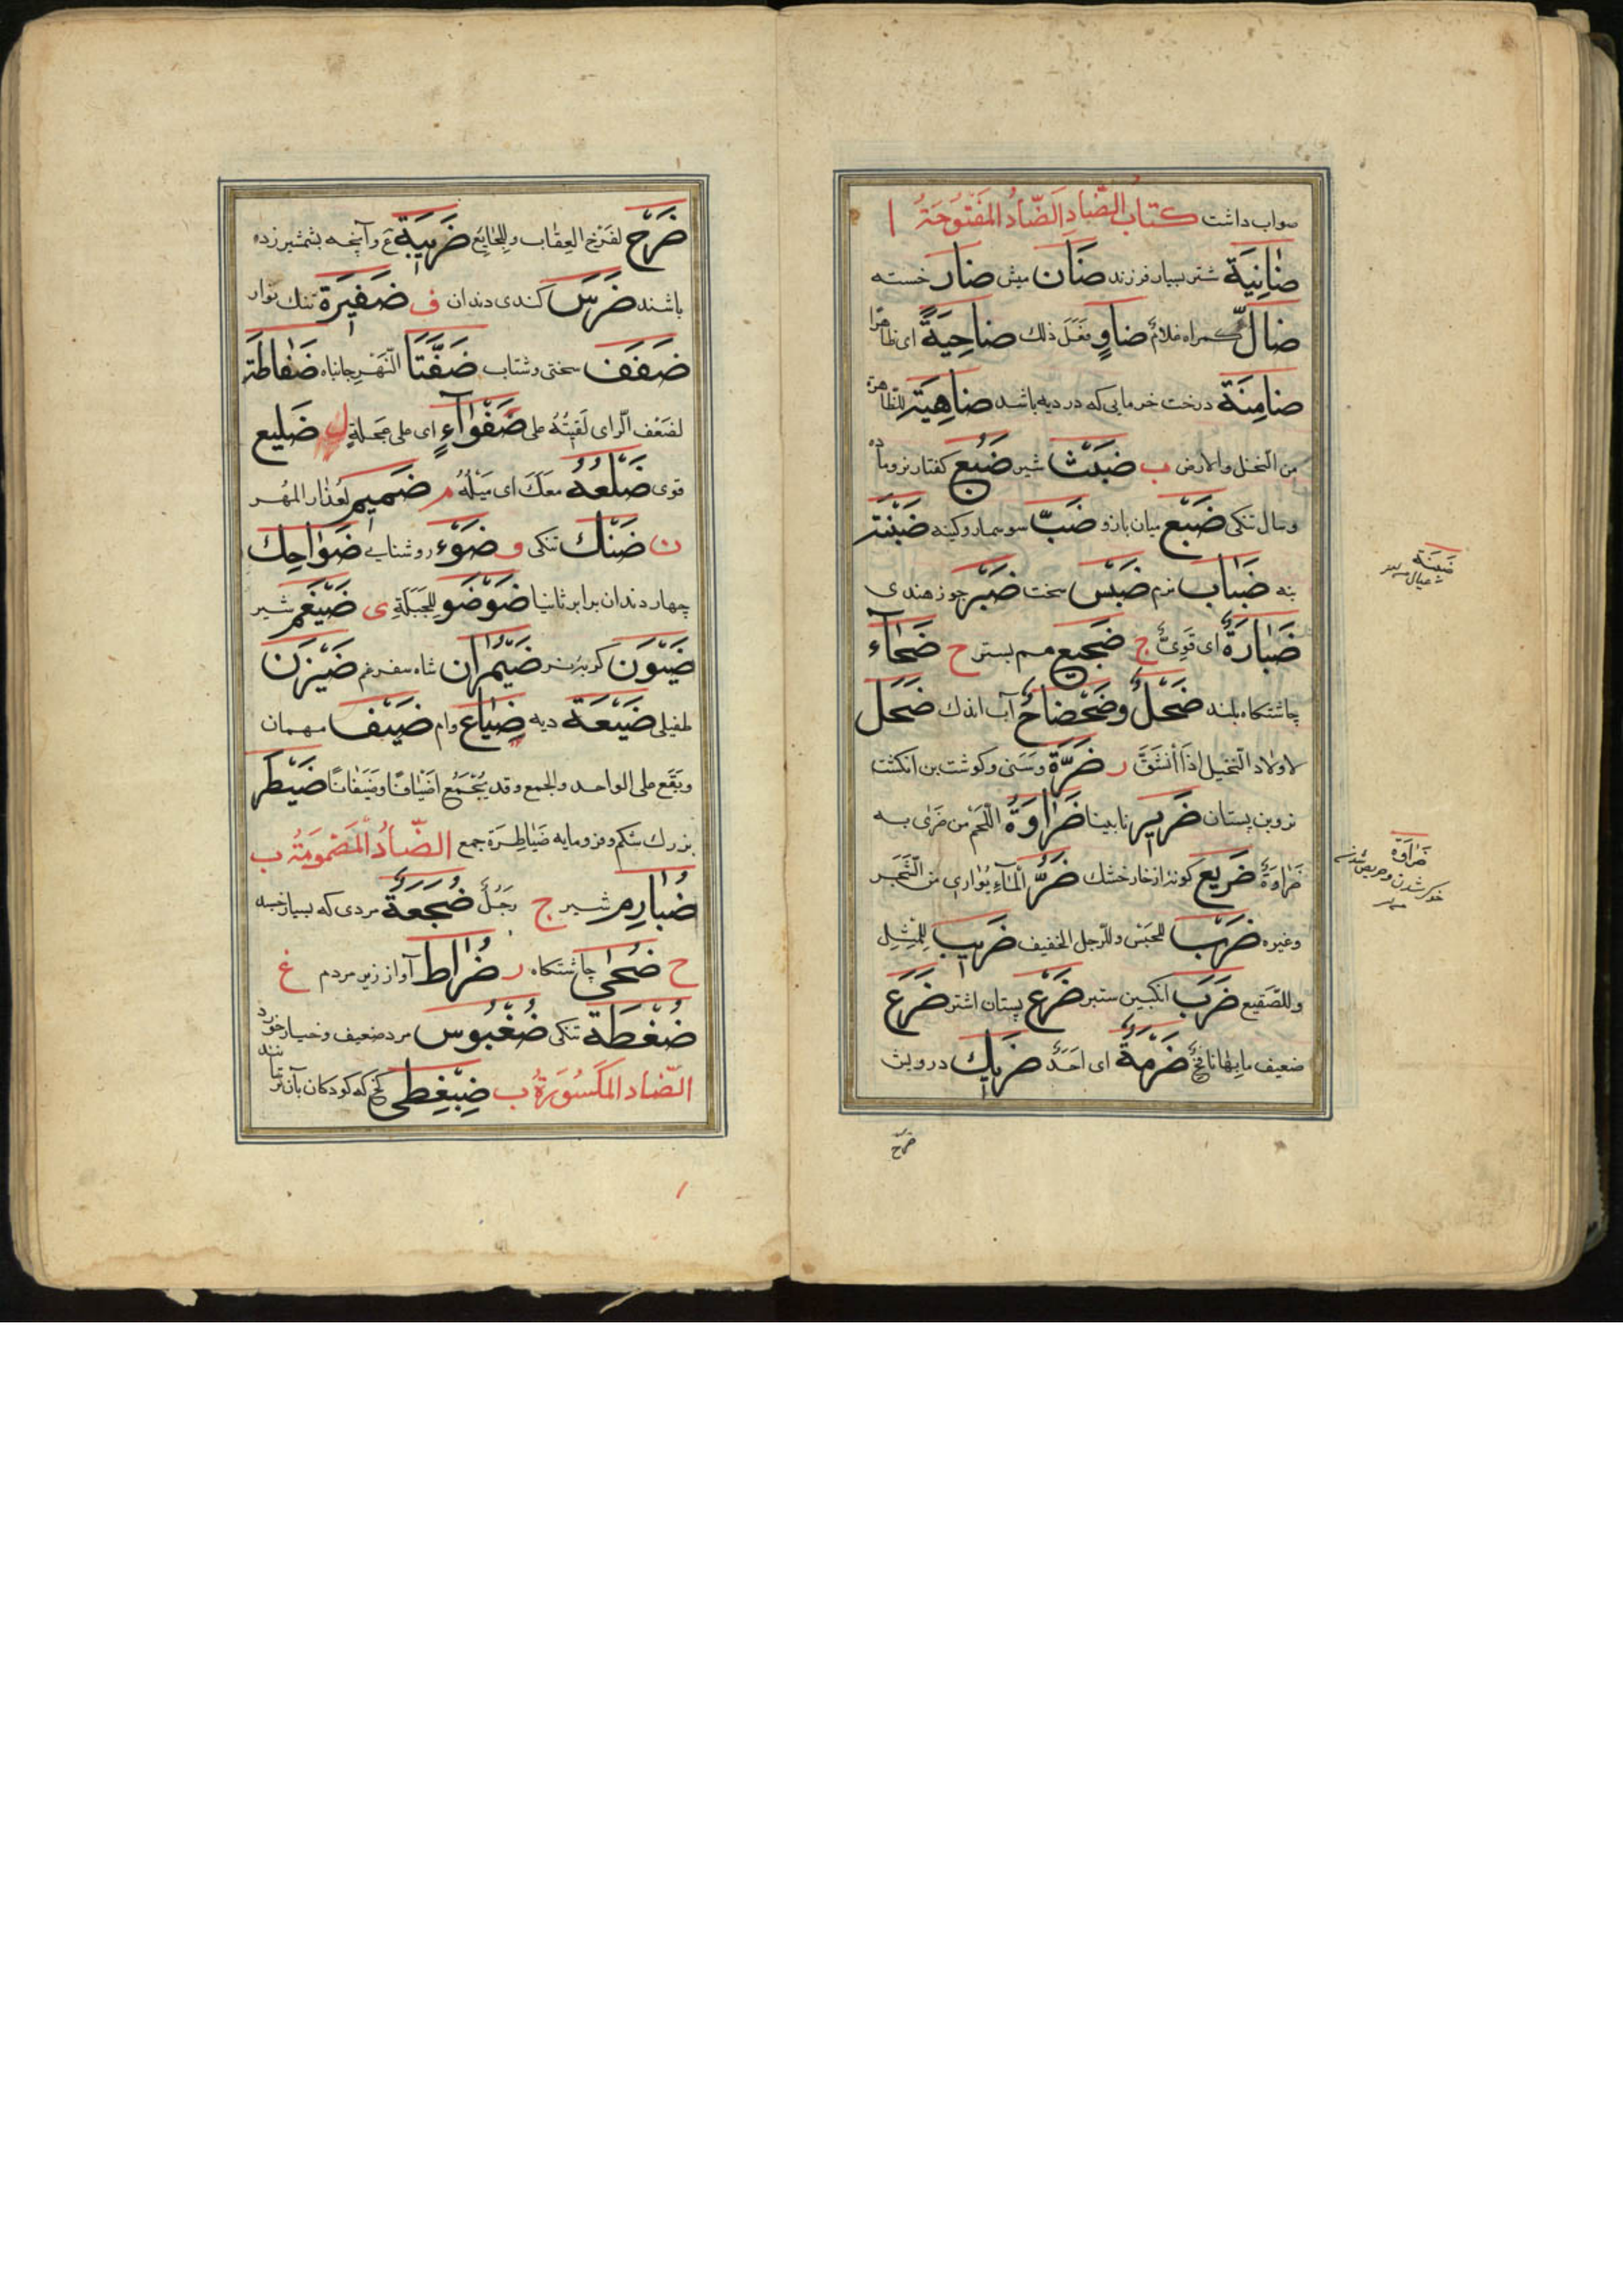 صواب داشت کتاب الضاد الضاد المفتوحة ا
ضانیة شتر بسیار فرزند ضان میش ضار خسته
ضالّ کمراه ضاوٍ فعل ذلك ضاحیةً ای ظاهرا
ضامنة درخت خرمایی که در دیه باشد
من النخل والارض ب ضبث شیر ضبع کفتار نر وماده
وسال تنکی ضبع میان بازو ضبّ سوسمار وکینه ضبنة
بنه ضباب نزم ضبس سخت ضبر جوز هندی
ضبارة ای قوی ج ضجیع هم بستر ح ضحاء
چاشتکاه بلند ضحل وضحضاح آب اندك ضحل
لاولاد النخیل اذا انشق ر ضرّة وسنی وکوشت بن انکشت
نر وبن پستان ضریر نابینا ضراوة اللحم من ضری به
ضراوةً ضریع کونه از خار خشك ضرّ الماء یواری من الشجر
وغیره ضرب للجنس وللرجل الخفیف ضریب للمثل
وللصقیع ضرب انکبین ستبر ضرع پستان اشتر ضرع
ضعیف ما بها نافخ ضرمة ای احد ضریك درویش
ضرح
ضبنة
ضراوة
خوکر شدن وحریص شدن
ضرح لفرخ العقاب وللجایع ضریبة ع وآنچه بشمشیر زده
باشند ضرس کندی دندان ف ضفیرة تنك نوار
ضفف سختی وشتاب ضفّتا النهر جانباه ضفاطة
لضعف الرای لقیته علی ضفواء ای علی عجلة ل ضلیع
قوی ضلعه معك ای میله م ضمیم لعذار المهر
ن ضنك تنکی و ضوء روشنایی ضواحك
چهار دندان برابر ثنایا ضوضو للجبلة ی ضیغم شیر
ضیون کربه نر ضیمران شاه سفرغم ضیزن
طفیلی ضیعة دیه ضیاع وام ضیف مهمان
ویقع علی الواحد والجمع وقد یجمع اضیافًا وضیفانًا ضیطر
بزرك شکم وفرومایه ضیاطرة جمع الضاد المضمومة ب
ضبارم شیر ج رجل ضجعة مردی که بسیار خسبد
ح ضحی چاشتکاه ر ضراط آواز زیر مردم غ
ضغطة تنکی ضغبوس مرد ضعیف وخیار خورد
الضاد المکسورة ب ضبغطی کخ که کودکان بآن ترسانند